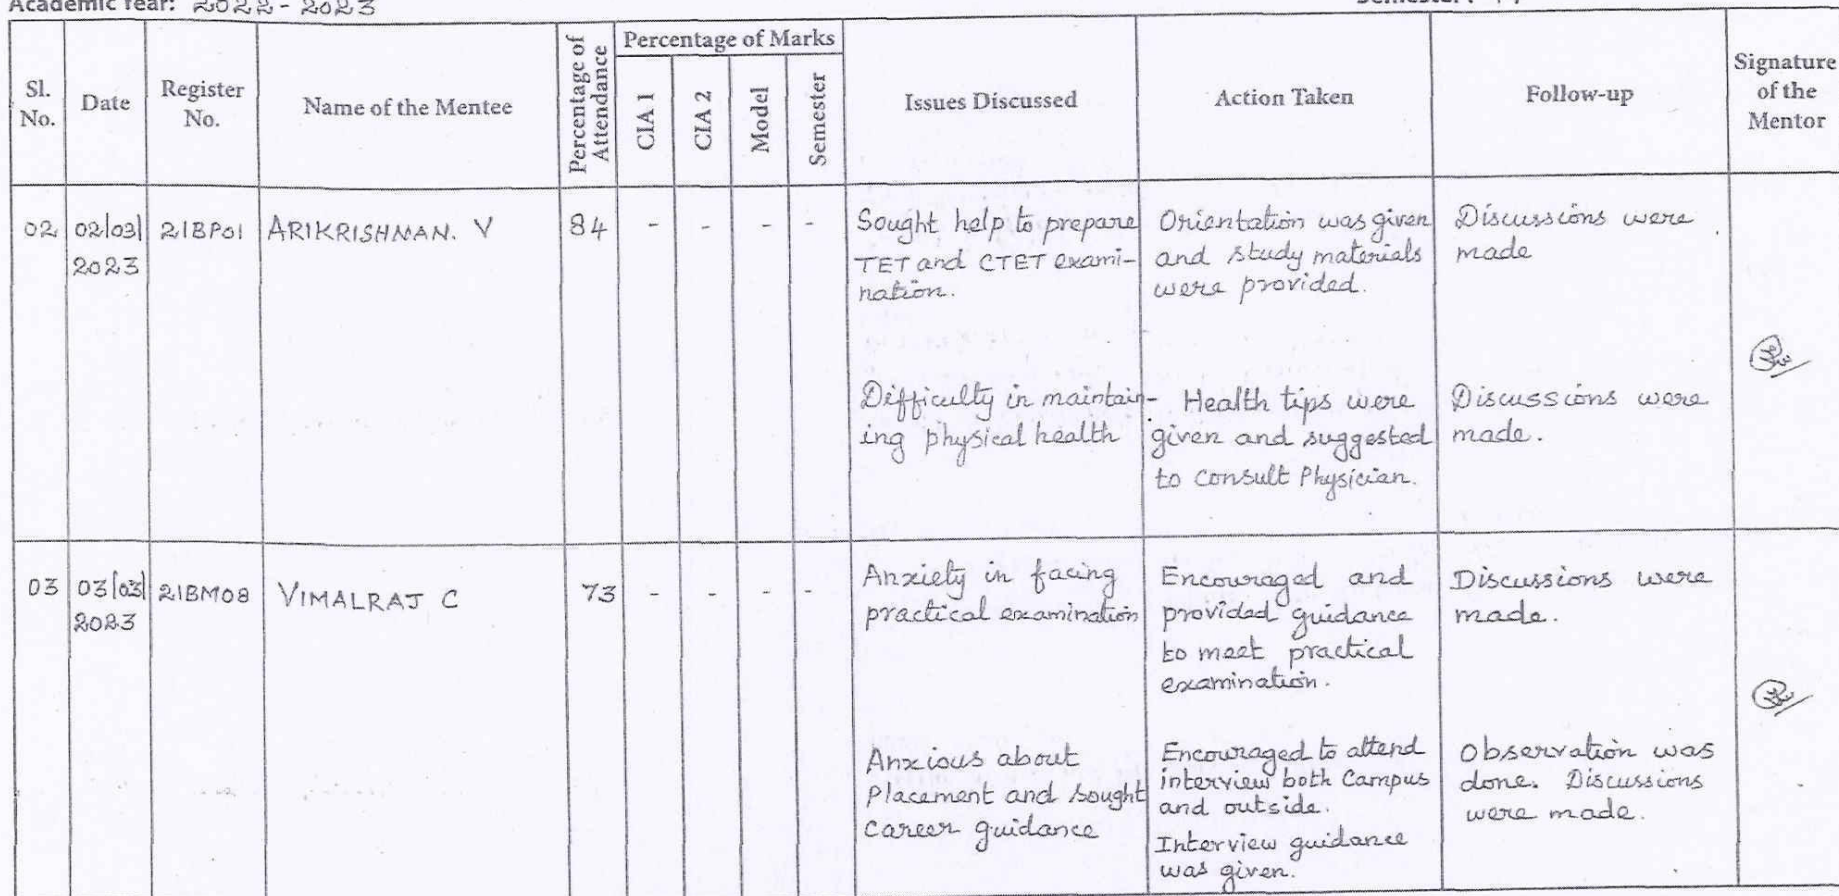 Academic Year: 2022-2023
Percentage of Marks
Sl. No.
Date
Register No.
Name of the Mentee
Percentage of Attendance
CIA 1
CIA 2
Model
Semester
Issues Discussed
Action Taken
Follow-up
Signature of the Mentor
02
02/03/
2023
21BP01
ARIKRISHNAN. V
84
-
-
-
-
Sought help to prepare
TET and CTET exami-
nation.
Orientation was given
and study materials
were provided.
Discussions were
made
Difficulty in maintain-
ing physical health
Health tips were
given and suggested
to consult Physician.
Discussions were
made.
03
03/03/
2023
21BM08
VIMALRAJ C
73
-
-
-
-
Anxiety in facing
practical examination
Encouraged and
provided guidance
to meet practical
examination.
Discussions were
made.
Anxious about
Placement and sought
Career guidance
Encouraged to attend
interview both Campus
and outside.
Interview guidance
was given.
Observation was
done. Discussions
were made.